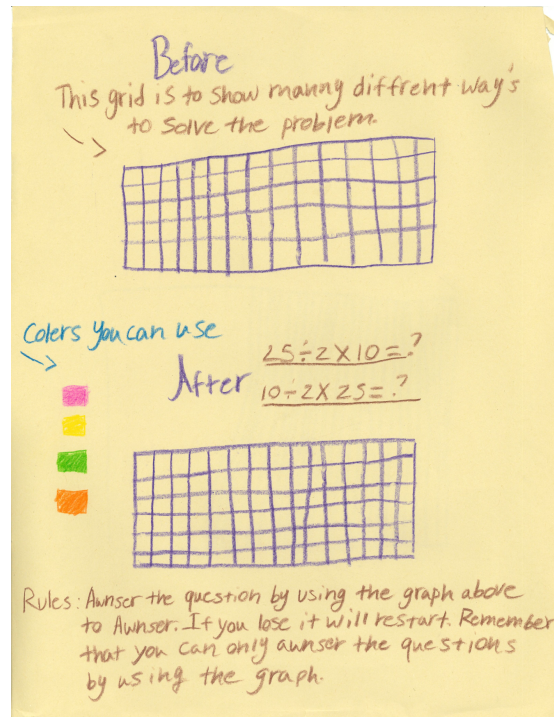 Before
This grid is to show manny diffrent way's
to solve the problem.
Colers you can use
25÷2X10=?
After
10÷2X25=?
Rules: Awnser the question by using the graph above
to Awnser. If you lose it will restart. Remember
that you can only awnser the questions
by using the graph.